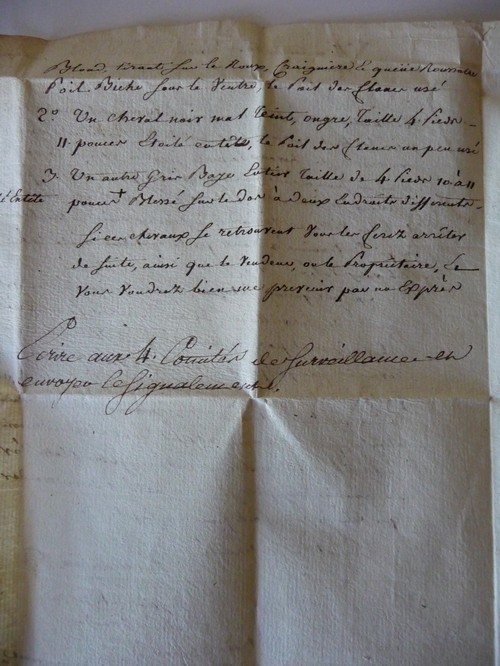 Blond, tirant sur le Roux, Craigniere & queue Roussatre
Poil Biche sous le Ventre, le Poil des flancs usé
2.° Un cheval noir mal teint, ongre, Taille 4 Pieds
11 pouces Etoilé en tete, le Poil des flancs un peu usé
3. Un autre Gris Baye Entier Taille de 4 Pieds 10 à 11
pouces + Blessé sur le dos à deux Endroits differents
Si ces chevaux se retrouvent vous les ferez arrêter
de suite, ainsi que le Vendeur, ou le Propriétaire, &
vous voudrez bien me prevenir par un Exprès
Ecrire aux 4. Comités de Surveillance en
envoyer le signalement.